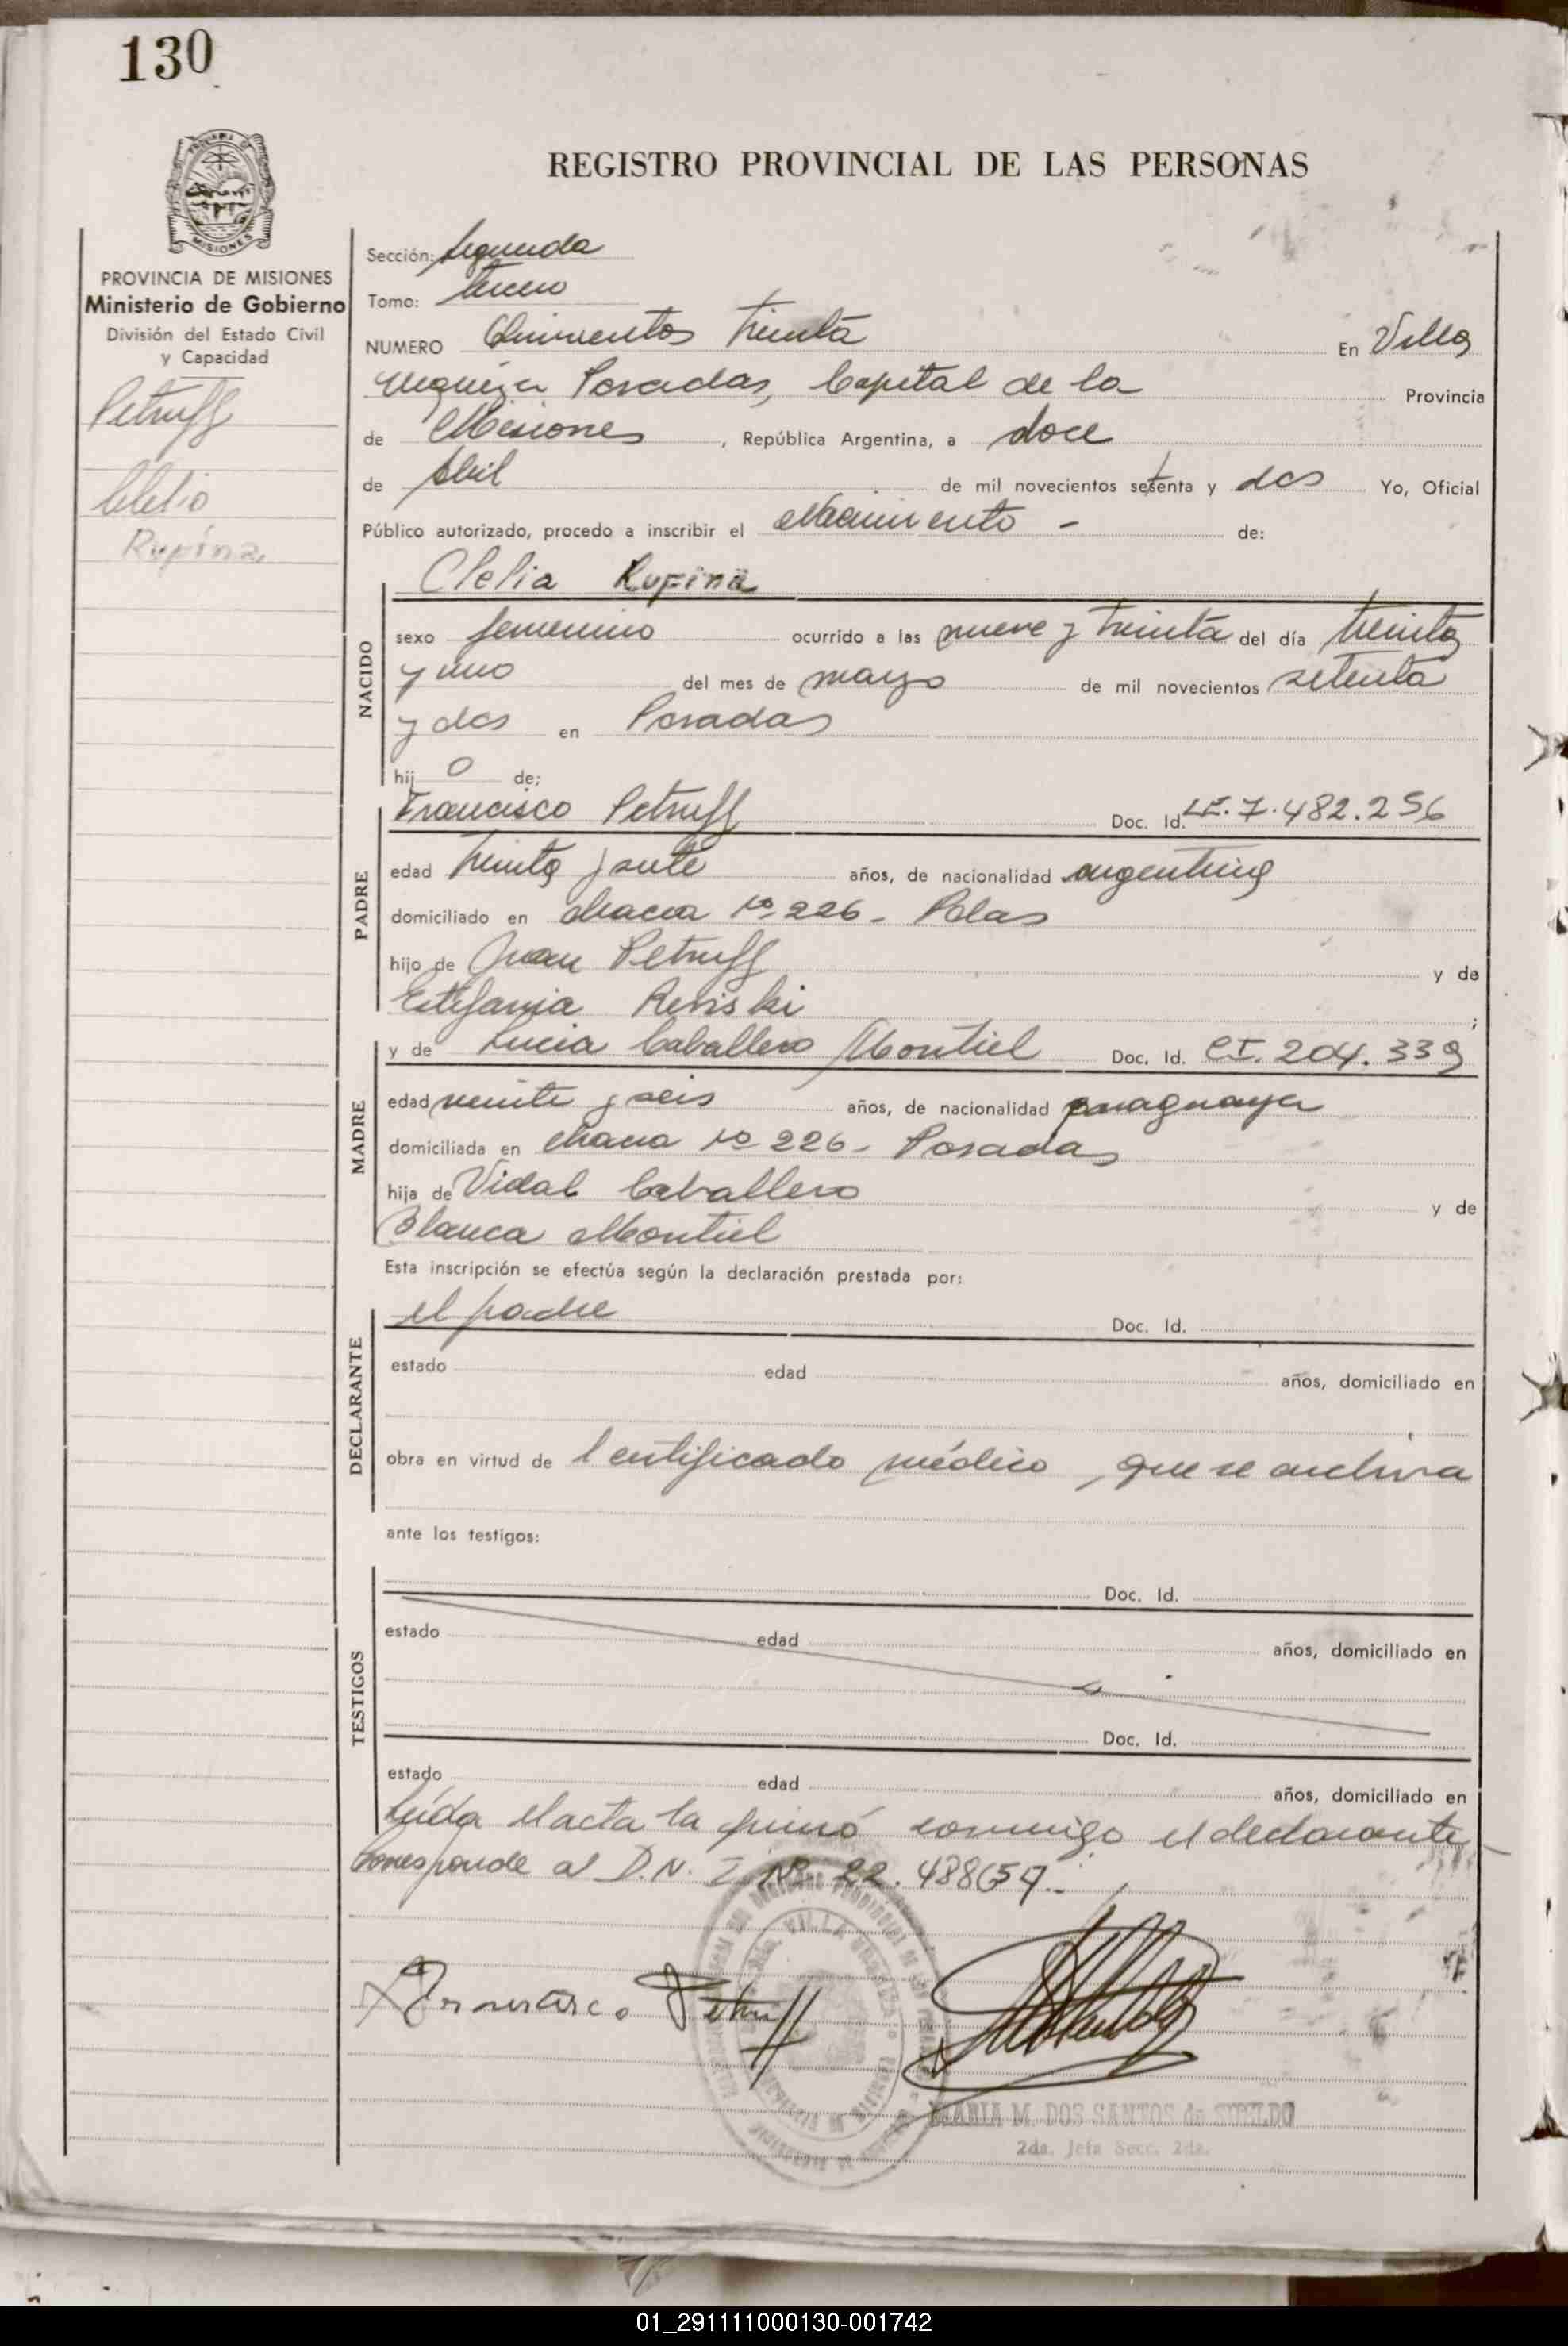 130
REGISTRO PROVINCIAL DE LAS PERSONAS
MISIONES
PROVINCIA DE MISIONES
Ministerio de Gobierno
División del Estado Civil
y Capacidad
Petruff
Clelia
Rupina
Sección: Segunda
Tomo: tercero
NUMERO Quinientos treinta En Villa
Urquiza Posadas, Capital de la Provincia
de Misiones, República Argentina, a doce
de Abril de mil novecientos setenta y dos Yo, Oficial
Público autorizado, procedo a inscribir el Nacimiento - de:
Clelia Rupina
NACIDO
sexo femenino ocurrido a las nueve y treinta del día treinta
y uno del mes de mayo de mil novecientos setenta
y dos en Posadas
hij o de:
PADRE
Francisco Petruff Doc. Id. LE. 7.482.256
edad treinta y años, de nacionalidad argentina
domiciliado en chacra Nº 226 - Pdas
hijo de Juan Petruff y de
Estefania Reviski ;
MADRE
y de Lucia Caballero Montiel Doc. Id. CI. 204.339
edad veinte y seis años, de nacionalidad paraguaya
domiciliada en chacra Nº 226 - Posadas
hija de Vidal Caballero y de
Blanca Montiel
Esta inscripción se efectúa según la declaración prestada por:
DECLARANTE
el padre Doc. Id.
estado edad años, domiciliado en
obra en virtud de Certificado médico, que se archiva
ante los testigos:
TESTIGOS
Doc. Id.
estado edad años, domiciliado en
Doc. Id.
estado edad años, domiciliado en
Leída el acta la firmó conmigo el declarante
Corresponde al D.N.I Nº 22.488657.
Francisco Petruff
MARIA M. DOS SANTOS de
2da. Jefa Secc. 2da.
01_291111000130-001742